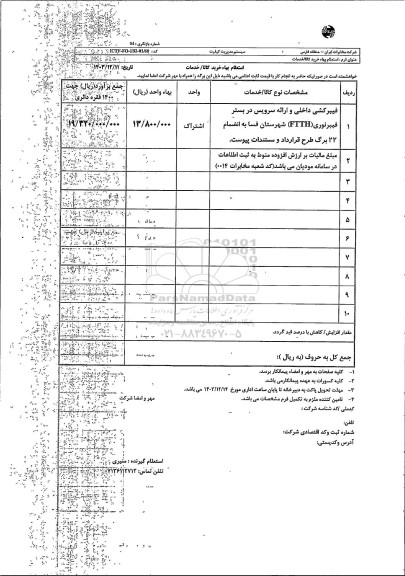 شرکت مخابرات ایران - منطقه فارس
سیستم مدیریت کیفیت
عنوان فرم: استعلام بهاء خرید کالا/خدمات
استعلام بهاء خرید کالا/ خدمات
تاریخ: ۱۴۰۳/۱۲/۱۱
خواهشمند است در صورتیکه حاضر به انجام کار با قیمت ثابت اعلامی می باشید ذیل این برگه را همراه با مهر شرکت امضا نمایید.
ردیف
مشخصات نوع کالا/خدمات
واحد
بهاء واحد (ریال)
جمع برآورد(ریال) جهت ۱۴۰۰ فقره دائری
۱
فیبرکشی داخلی و ارائه سرویس در بستر
فیبرنوری(FTTH) شهرستان فسا به انضمام
۲۲ برگ طرح قرارداد و مستندات پیوست.
اشتراک
۱۳/۸۰۰/۰۰۰
۱۹/۳۲۰/۰۰۰/۰۰۰
۲
مبلغ مالیات بر ارزش افزوده منوط به ثبت اطلاعات
در سامانه مودیان می باشد(کد شعبه مخابرات ۰۰۱۴)
۳
۴
۵
۶
۷
۸
۹
۱۰
ParsNamadData
۰۲۱-۸۸۳۴۹۶۷۰-۵
مقدار افزایش/ کاهش با درصد قید گردد.
جمع کل به حروف (به ریال ):
۱- کلیه صفحات به مهر و امضاء پیمانکار برسد.
۲- کلیه کسورات به عهده پیمانکار می باشد.
۳- مهلت تحویل پاکت به دبیرخانه تا پایان ساعت اداری مورخ ۱۴۰۳/۱۲/۱۴ می باشد.
۴- تامین کننده ملزم به تکمیل فرم مشخصات می باشد.
مهر و امضا شرکت
کدملی /کد شناسه شرکت:
تلفن:
شماره ثبت وکد اقتصادی شرکت:
آدرس وکدپستی:
استعلام گیرنده : منیری
تلفن تماس: ۰۷۱۳۶۱۱۲۷۱۳